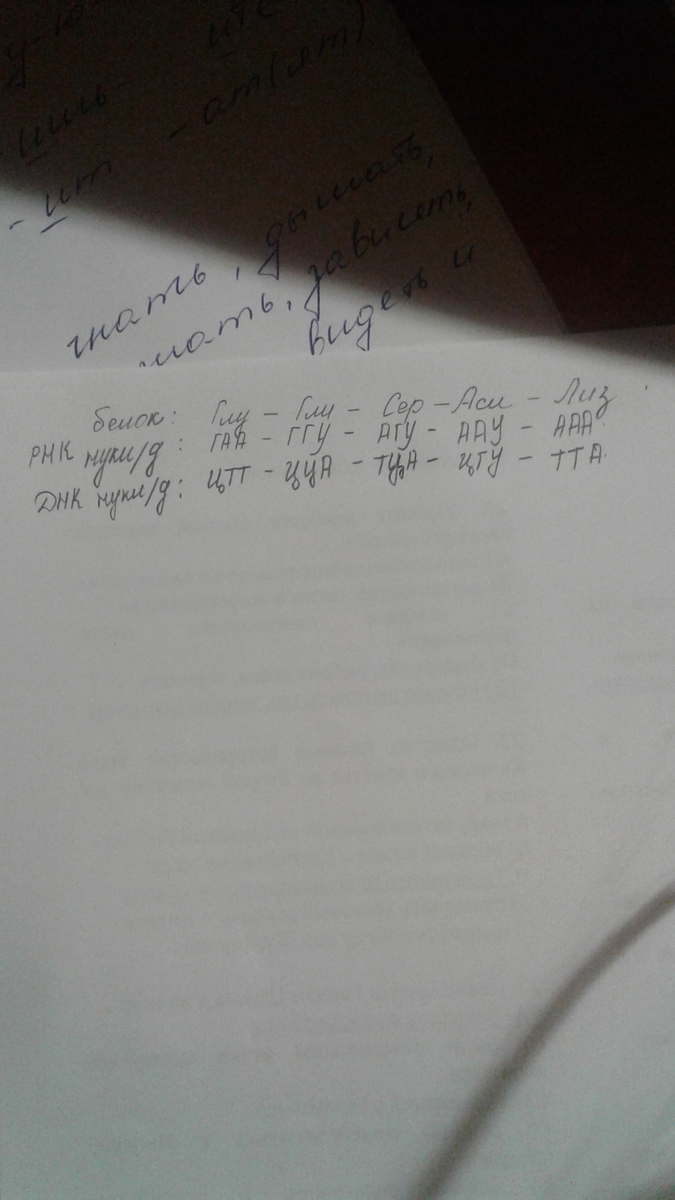 у-ю-
ишь-
-ит -ат(ят)
гнать, дышать,
зависеть,
видеть и
белок: Глу - Гли - Сер - Асн - Лиз
РНК нукл/д: ГАА - ГГУ - АГУ - ААУ - ААА.
ДНК нукл/д: ЦТТ - ЦЦА - ТЦА - ЦГУ - ТТА.